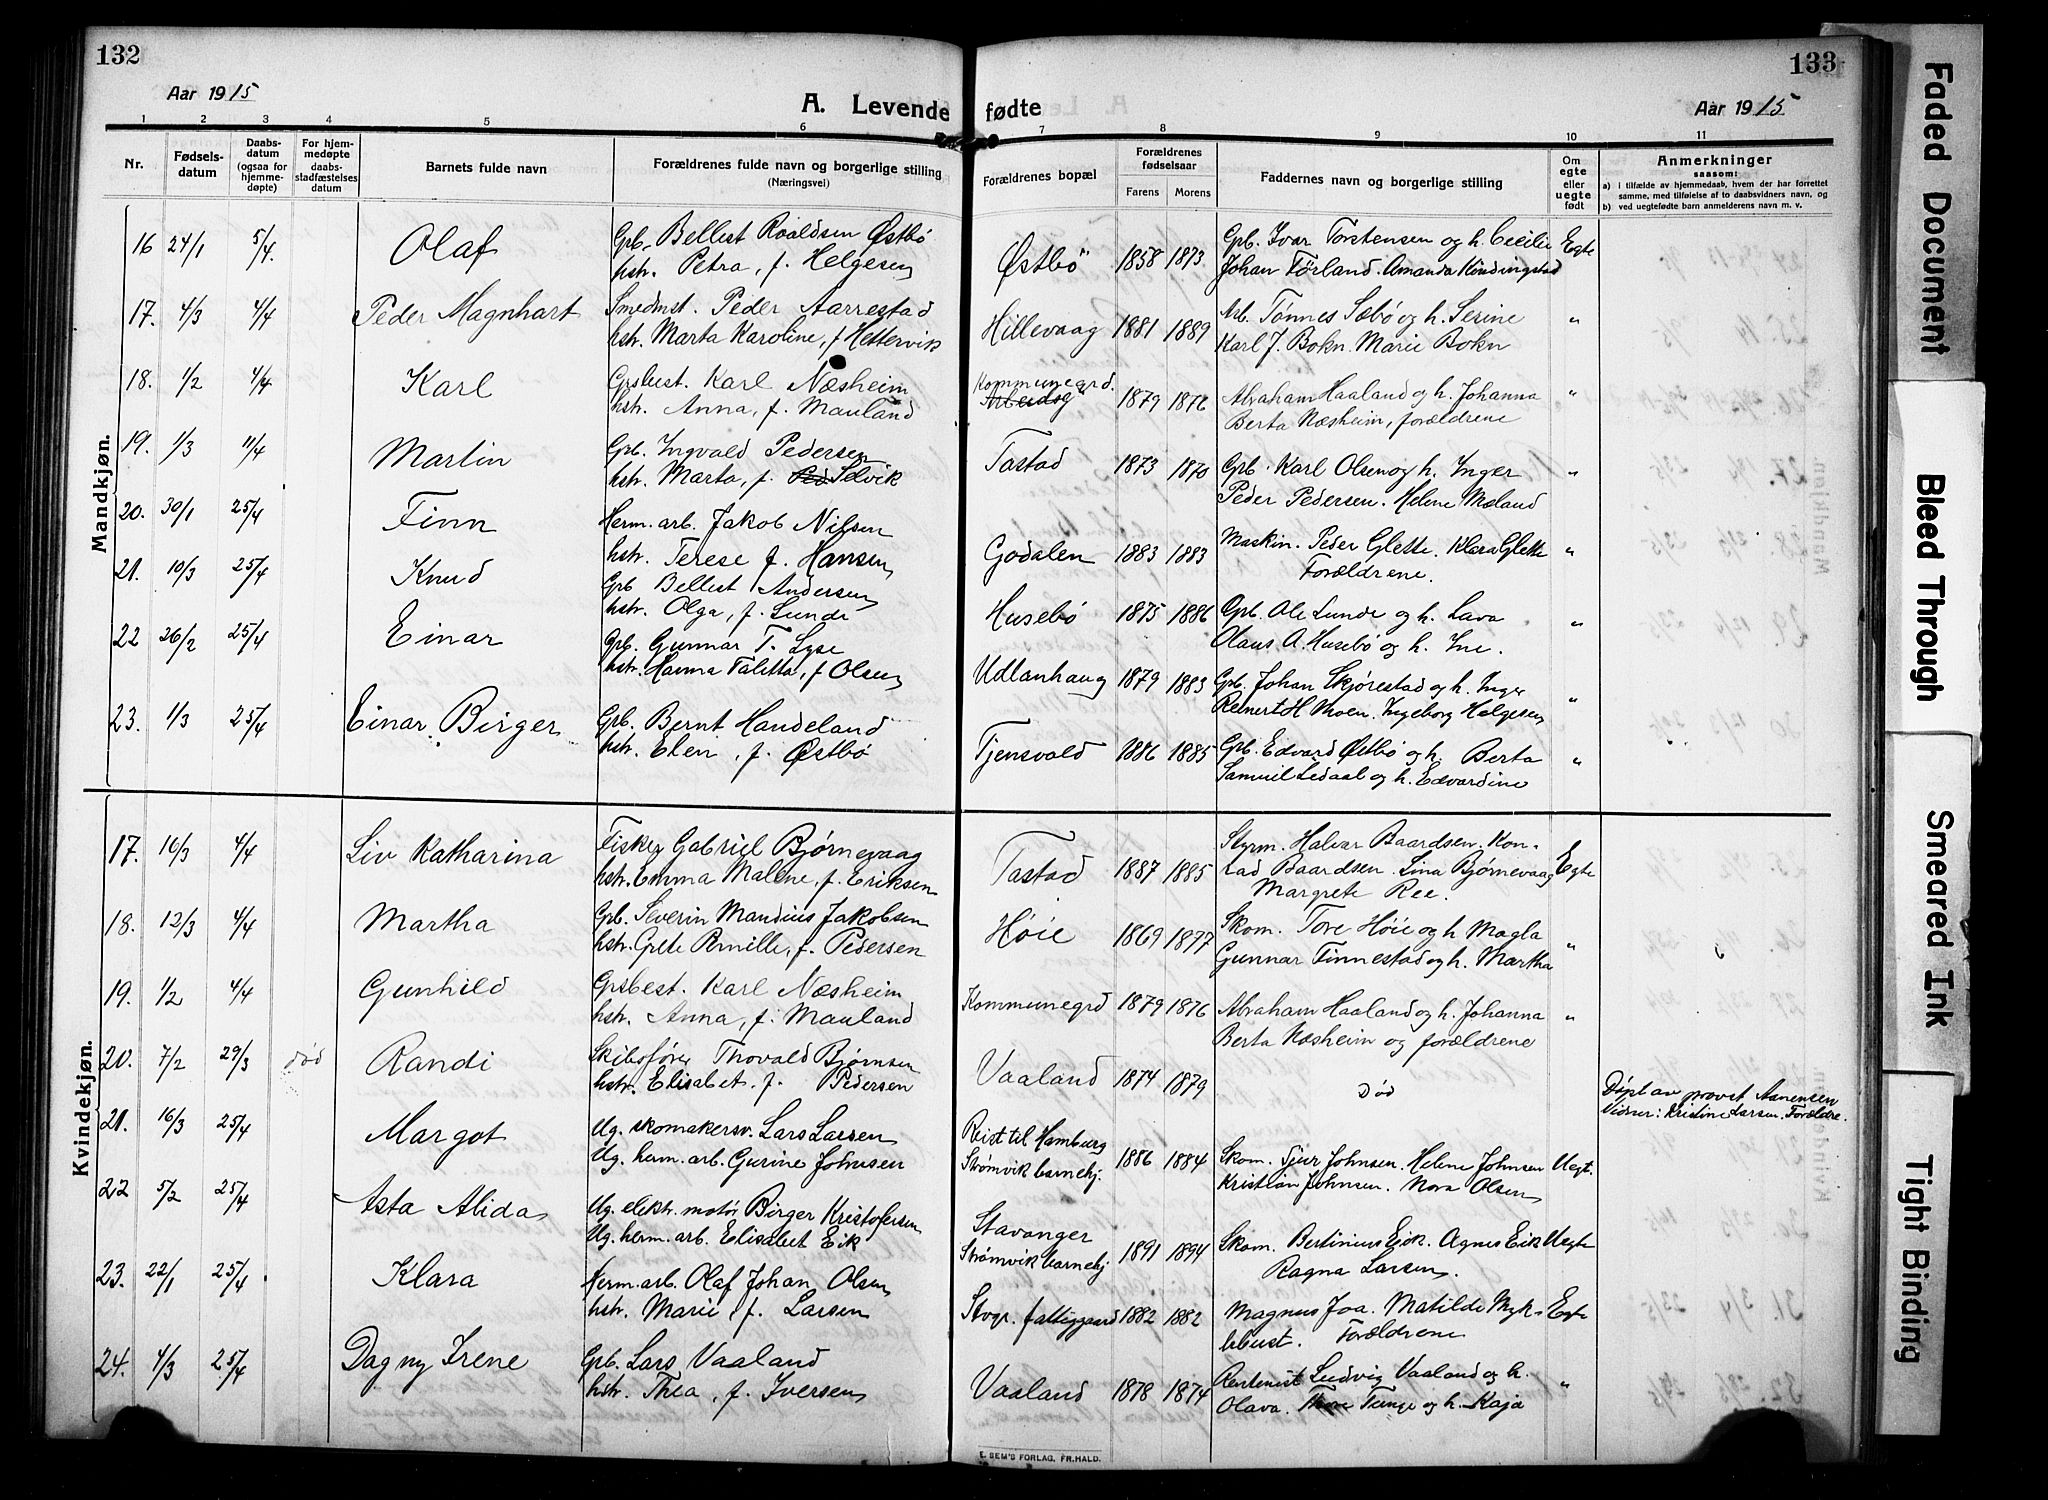 132
Aar 1915
A. Levende
1 2 3 4 5 6
Nr.
Fødsels-
datum
Daabs-
datum
(ogsaa for
hjemme-
døpte)
For hjem-
medøpte
daabs-
stadfæstelses
datum
Barnets fulde navn
Forældrenes fulde navn og borgerlige stilling
(Næringsvei)
Mandkjøn.
16 24/1 5/4. Olaf Gpb. Bellest Roaldsen Østbø
hstr. Petra, f. Helgesen
17. 4/3 4/4 Peder Magnhart Smedmst. Peder Aarrestad
hstr. Marta Karoline, f Hettervik
18. 1/2 4/4 Karl Gpsbest. Karl Næsheim
hstr. Anna, f. Mauland
19. 1/3 11/4 Martin Gpb. Ingvald Pedersen
hstr. Marta, f. Selvik
20. 30/1 25/4 Finn Herm. arb. Jakob Nilsen
hstr. Terese f. Hansen
21. 10/3 25/4 Knud Gpb Bellest Andersen
hstr. Olga, f. Lunde
22 26/2 25/4 Einar Gpb. Gunnar T. Lyse
hstr. Hanna Talitta, f Olsen
23. 1/3 25/4 Einar Birger Gpb. Bernt Handeland
hstr. Elen, f. Østbø
Kvindekjøn.
17. 16/3 4/4 Liv Katharina Fisker Gabriel Bjørnevaag
hstr. Emma Malene, f. Eriksen
18. 12/3 4/4 Martha Gpb. Severin Mandius Jakobsen
hstr. Grete Pernille, f. Pedersen
19. 1/2 4/4 Gunhild Gpsbest. Karl Næsheim
hstr. Anna, f. Mauland
20. 7/2 29/3 død Randi Skibsfører Thovald Bjørnsen
hstr. Elisabet, f. Pedersen
21. 16/3 25/4 Margot Ug. skomakersv. Lars Larsen
Ug. herm. arb. Gurine Johnsen
22 5/2 25/4 Asta Alida Ug. elektr. motör Birger Kristofersen
Ug. herm. arb. Elisabet Eik
23. 22/1 25/4 Klara Herm. arb. Olaf Johan Olsen
hstr. Marie f. Larsen
24. 4/3 25/4 Dagny Irene Gpb. Lars Vaaland
hstr. Thea, f. Iversen
133
fødte
Aar 1915
7 8 9 10 11
Forældrenes bopæl
Forældrenes
fødselsaar
Farens Morens
Faddernes navn og borgerlige stilling
Om
egte
eller
uegte
født
Anmerkninger
saasom:
a) i tilfælde av hjemmedaab, hvem der har forrettet
samme, med tilføielse av to daabsvidners navn, og
b) ved uegtefødte barn anmelderens navn m. v.
Østbö 1858 1873 Gpb. Ivar Torstensen og h. Cecilie Egte
Johan Førland. Amanda Kindingstad
Hillevaag 1881 1889 Arb. Tønnes Sæbø og h. Serine "
Karl J. Bokn. Marie Bokn
Kommunegrd. 1879 1876 Abraham Haaland og h. Johanna "
Berta Næsheim, forældrene
Tastad 1873 1870 Gpb. Karl Olsen og h. Inger "
Peder Pedersen. Helene Mæland
Godalen 1883 1883 Maskin. Peder Glette. Klara Glette "
Forældrene.
Husebø 1875 1886 Gpb. Ole Lunde og h. Lava "
Olaus A. Husebø og h. Ine.
Udlanhaug 1879 1883 Gpb. Johan Skjørestad og h. Inger "
Reinert H Moen. Ingeborg Helgesen
Tjensvold 1886 1885 Gpb. Edvard Østbø og h. Berta "
Samuel Ledaal og h. Edvardine
Tastad 1887 1885 Styrm. Halvar Baardsen. Kon-
rad Baardsen. Lina Bjørnevaag Egte
Margrete Ree.
Høie 1869 1877 Skom. Tore Høie og h Magla "
Gunnar Finnestad og h. Martha
Kommunegrd 1879 1876 Abraham Haaland og h. Johanna "
Berta Næsheim og forældrene
Vaaland 1874 1879 Død Døpt av provst Aanensen
Vidner: Kristine Larsen. Forældre.
Reist til Hamburg
Strømvik barnehj. 1886 1884 Skom. Tjur Johnsen. Helene Johnsen Uegt.
Kristian Johnsen. Nora Olsen
Stavanger
Strømvik barnehj 1891 1894 Skom. Bertinius Eik. Agnes Eik Uegte
Ragna Larsen.
Stvgr. fattiggaard 1882 1882 Magnus Joa. Matilde Myk- Egte
lebust. Forældrene
Vaaland 1878 1874 Rentenist Ludvig Vaaland og h. "
Olava. Tunge og h. Kaja
E. SEM'S FORLAG, FR.HALD.
Faded Document
Bleed Through
Smeared Ink
Tight Binding